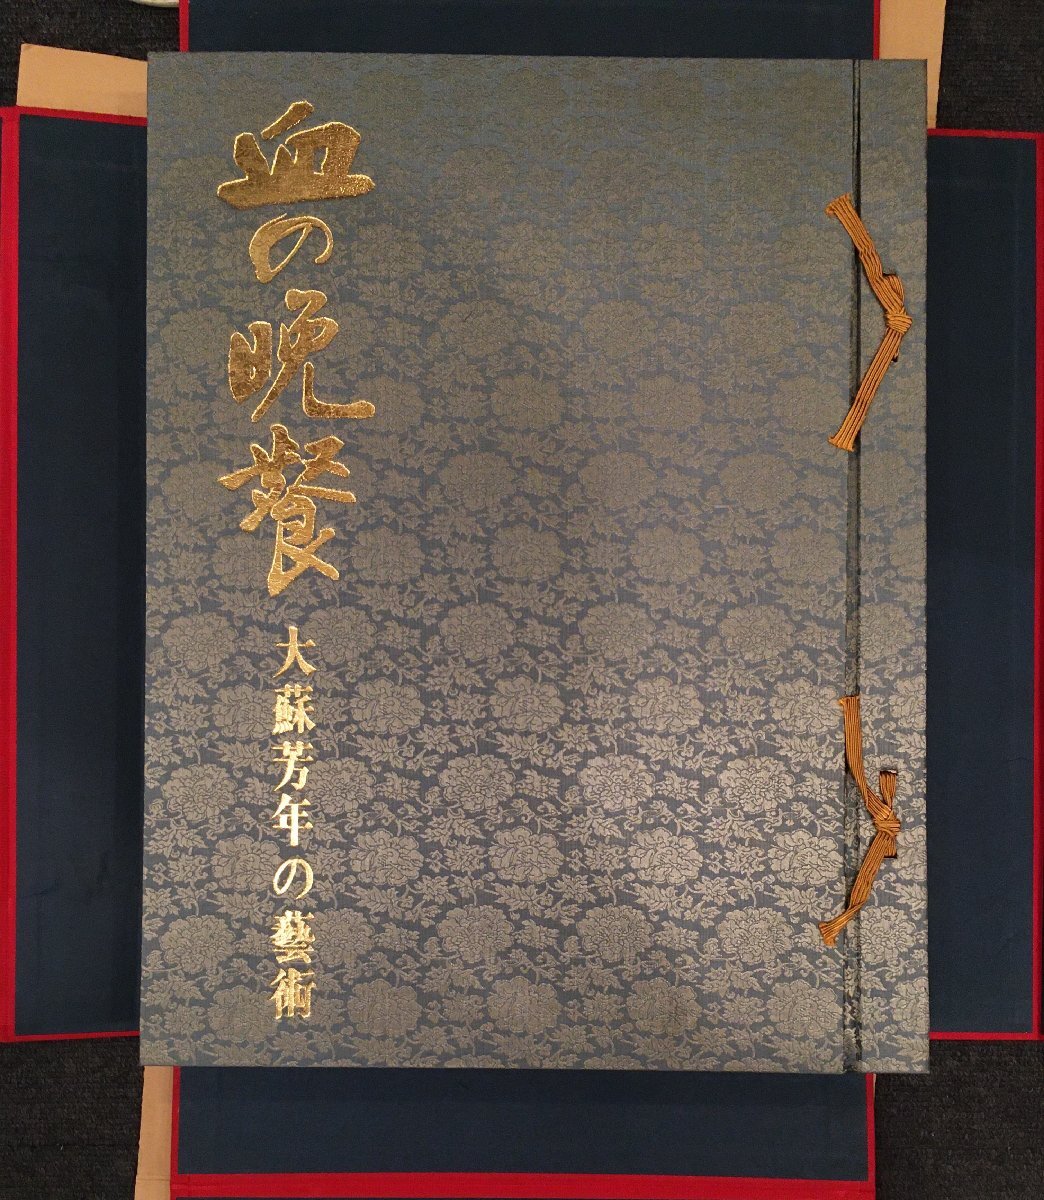 血の晩餐
大蘇芳年の藝術